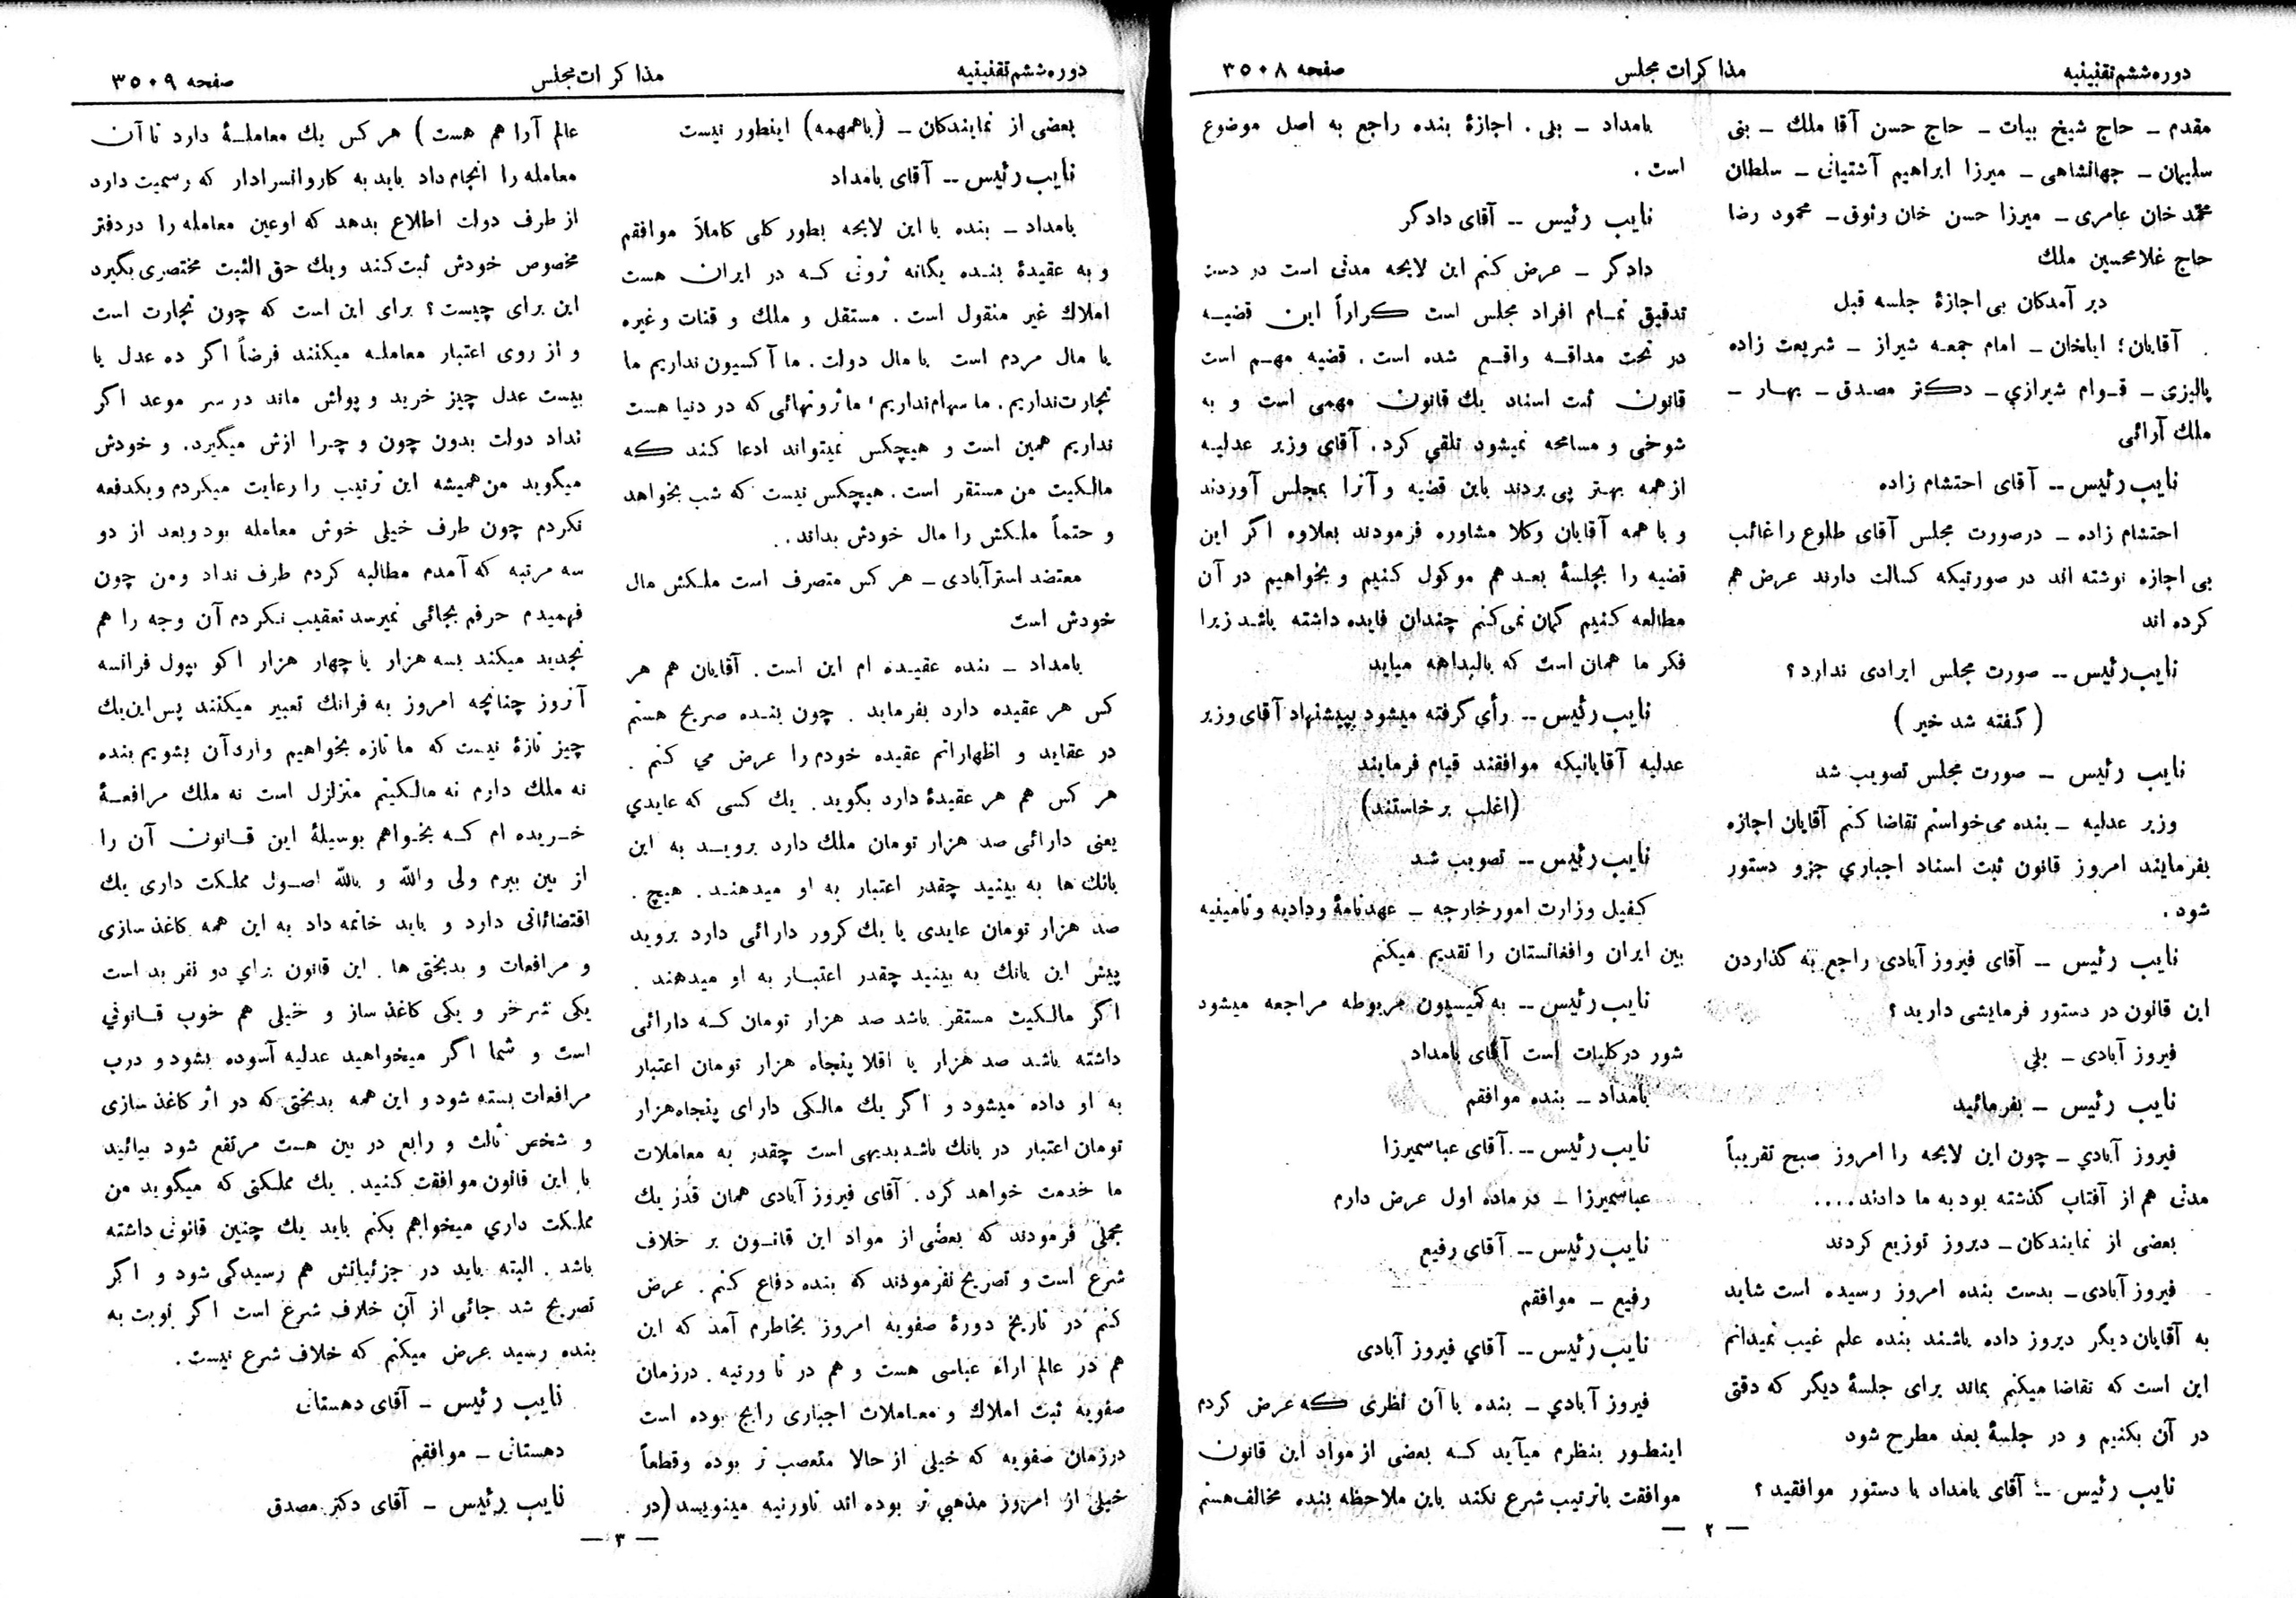 دوره ششم تقنینیه
مذاکرات مجلس
صفحه ۳۵۰۸
مقدم – حاج شیخ بیات – حاج حسن آقا ملك – بنی
سلیمان – جهانشاهی – میرزا ابراهیم آشتیانی – سلطان
محمد خان عامری – میرزا حسن خان وثوق – محمود رضا
حاج غلامحسین ملك
دیر آمدگان بی اجازۀ جلسه قبل
آقایان؛ ایلخان – امام جمعه شیراز – شریعت زاده
پالیزی – قـوام شیرازي – دکتر مصدق – بهـار –
ملك آرائی
نایب رئیس -- آقای احتشام زاده
احتشام زاده – درصورت مجلس آقای طلوع را غائب
بی اجازه نوشته اند در صورتیکه کسالت دارند عرض هم
کرده اند
نایب رئیس -- صورت مجلس ایرادی ندارد ؟
( گفته شد خیر )
نایب رئیس – صورت مجلس تصویب شد
وزیر عدلیه – بنده می‌خواستم تقاضا کنم آقایان اجازه
بفرمایند امروز قانون ثبت اسناد اجباري جزو دستور
شود .
نایب رئیس -- آقای فیروز آبادی راجع به گذاردن
این قانون در دستور فرمایشی دارید ؟
فیروز آبادی – بلي
نایب رئیس – بفرمائید
فیروز آبادي – چون این لایحه را امروز صبح تقریباً
مدتی هم از آفتاب گذشته بود به ما دادند ....
بعضی از نمایندکان – دیروز توزیع کردند
فیروز آبادی – بدست بنده امروز رسیده است شاید
به آقایان دیگر دیروز داده باشند بنده علم غیب نمیدانم
این است که تقاضا میکنم بماند برای جلسۀ دیگر که دقتی
در آن بکنیم و در جلسۀ بعد مطرح شود
نایب رئیس -- آقای یامداد با دستور موافقید ؟
یامداد – بلی . اجازۀ بنده راجع به اصل موضوع
است .
نایب رئیس -- آقای دادگر
دادگر – عرض کنم این لایحه مدتی است در دست
تدقیق تمـام افراد مجلس است کراراً این قضیـه
در تحت مداقـه واقـع شده است . قضیه مهـم است
قانون ثبت اسناد یك قانون مهمی است و به
شوخی و مسامحه نمیشود تلقي کرد . آقای وزیر عدلیـه
از همه بهـتر پی بردند باین قضیه و آنرا بمجلس آوردند
و با همه آقایان وکلا مشاوره فرمودند بعلاوه اگر این
قضیه را بجلسۀ بعـد هم موکول کـنیم و بخواهیم در آن
مطالعه کـنیم گمان نمی‌کنم چندان فایده داشته باشـد زیرا
فکر ما همان است که بالبداهه میاید
نایب رئیس -- رأي گرفته میشود بپیشنهاد آقای وزیر
عدلیه آقایانیکه موافقند قیام فرمایند
(اغلب برخاستند)
نایب رئیس -- تصویب شـد
کفیل وزارت امور خارجه – عهدنامۀ ودادیه و تأمینیه
بین ایران و افغانستان را تقدیم میکنم
نایب رئیس -- به کمیسیون مربوطه مراجعه میشود
شور در کلیات است آقای یامداد
یامداد – بنده موافقم
نایب رئیس -- آقای عباسمیرزا
عباسمیرزا – در ماده اول عرض دارم
نایب رئیس -- آقای رفیع
رفیع – موافقم
نایب رئیس -- آقاي فیروز آبادی
فیروز آبادي – بنده با آن نظری که عرض کردم
اینطـور بنظرم میآید کـه بعضی از مواد این قانون
موافقت با ترتیب شرع نکند باین ملاحظه بنده مخالف هستم
— ۲ —
دوره ششم تقنینیه
مذاکرات مجلس
صفحه ۳۵۰۹
بعضی از نمایندکان – (با همهمه) اینطور نیست
نایب رئیس -- آقای یامداد
یامداد – بنده با این لایحه بطور کلی کاملاً موافقم
و به عقیدۀ بنـده یگانه ثروتی کـه در ایران هست
املاك غیر منقول است . مستقل و ملك و قنات و غیره
یا مال مردم است یا مال دولت . ما آکسیون نداریم ما
تجارت نداریم . ما سهام نداریم ، ما ثروتهائی که در دنیا هست
نداریم همین است و هیچکس نمیتواند ادعا کـند که
مالکیت من مستقر است . هیچکس نیست که شب بخواهد
و حتماً ملـکش را مال خودش بداند . .
معتضد استرآبادی – هر کس متصرف است ملـکش مال
خودش است
یامداد – بنده عقیـده ام این است . آقایان هم هر
کس هر عقیده دارد بفرماید . چون بنـده صریح هستم
در عقاید و اظهاراتم عقیده خودم را عرض مي کنم .
هر کس هم هر عقیدۀ دارد بگوید . یك کسی که عایدي
یعنی دارائی صد هزار تومان ملك دارد برویـد به این
بانك ها به بینید چقدر اعتبار به او میدهنـد . هیچ .
صد هزار تومان عایدی یا یك کرور دارائی دارد بروید
پیش این بانك به بینید چقدر اعتبـار به او میدهند .
اگر مالـکیت مستقر باشد صد هزار تومان کـه دارائی
داشته باشـد صد هزار یا اقلا پنجاه هزار تومان اعتبار
به او داده میشود و اگر یك مالـکی دارای پنجاه هزار
تومان اعتبار در بانك باشد بدیهی است چقدر به معاملات
ما خدمت خواهد کرد . آقای فیروز آبادی همان قدر یك
مجملی فرمودند که بعضی از مواد این قانـون بر خلاف
شرع است و تصریح نفرمودند که بنده دفاع کنم . عرض
کنم در تاریخ دورۀ صفویه امروز بخاطرم آمد که این
هم در عالم اراء عباسی هست و هم در تاورنیه . در زمان
صفویه ثبت املاك و معـاملات اجباری رایج بوده است
در زمان صفویه که خیلی از حالا متعصب تر بوده و قطعاً
خیلی از امروز مذهبي تر بوده اند تاورنیه مینویسد (در
عالم آرا هم هست) هر کس یك معاملـۀ دارد تا آن
معامله را انجام داد باید به کاروانسرادار که رسمیت دارد
از طرف دولت اطلاع بدهد که او عین معامله را در دفتر
مخصوص خودش ثبت کـند و یك حق الثبت مختصری بگیرد
این برای چیست ؟ برای این است که چون تجارت است
و از روی اعتبار معاملـه میکنند فرضاً اگر ده عدل یا
بیست عدل چیز خرید و پولش ماند در سر موعد اگر
نداد دولت بدون چون و چـرا ازش میگیرد . و خودش
میگوید من همیشه این ترتیب را رعایت میکردم و یکدفعه
نکردم چون طرف خیلی خوش معامله بود و بعد از دو
سه مرتبه که آمدم مطالبه کردم طرف نداد و من چون
فهمیدم حرفم بجائی نمیرسد تعقیب نـکردم آن وجه را هم
تجدید میکند بسه هزار یا چهار هزار اکو بپول فرانسه
آنروز چنانچه امروز به فرانك تعبیر میکنند پس این یك
چیز تازۀ نیست که ما تازه بخواهیم وارد آن بشویم بنده
نه ملك دارم نه مالـکیتم متزلزل است نه ملك مرافعـۀ
خـریده ام کـه بخـواهم بوسیلۀ این قـانون آن را
از بین ببرم ولی والله و بالله اصـول مملـکت داری یك
اقتضائاتی دارد و باید خاتمه داد به این همه کاغذ سازی
و مرافعات و بدبختی ها . این قانون براي دو نفر بد است
یکی شرخر و یکی کاغذ ساز و خیلی هم خوب قـانوني
است و شما اگر میخواهید عدلیه آسوده بشود و درب
مرافعات بسته شود و این همه بدبختی که در اثر کاغذ سازی
و شخص ثالث و رابع در بین هست مرتفع شود بیائید
با این قانون موافقت کـنید . یك مملـکتی که میگوید من
مملـکت داري میخواهم بکنم باید یك چنین قانونی داشته
باشد . البته باید در جزئیاتش هم رسیدگی شود و اگر
تصریح شد جائی از آن خلاف شرع است اگر نوبت به
بنده رسید عرض میکنم که خلاف شرع نیست .
نایب رئیس – آقای دهستانی
دهستانی – موافقم
نایب رئیس – آقای دکتر مصدق
— ۳ —